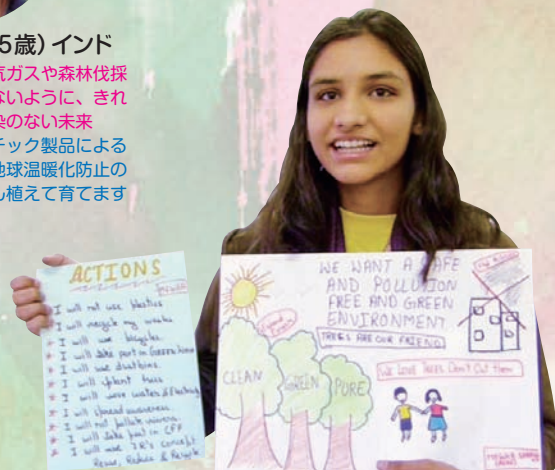 5歳）インド
気ガスや森林伐採
ないように、きれ
染のない未来
チック製品による
地球温暖化防止の
し植えて育てます
ACTIONS
I will not use plastics
I will recycle my waste
I will use bicycles
I will take part in Green
I will use dustbins.
I will plant trees
I will save water &
I will spread awareness.
I will not pollute
I will take part in CFP
I will use 3R's concept
Reuse, Reduce & Recycle
WE WANT A SAFE
AND POLLUTION
FREE AND GREEN
ENVIRONMENT
TREES ARE OUR FRIEND
We Love Trees Don't Cut them
CLEAN
GREEN
PURE